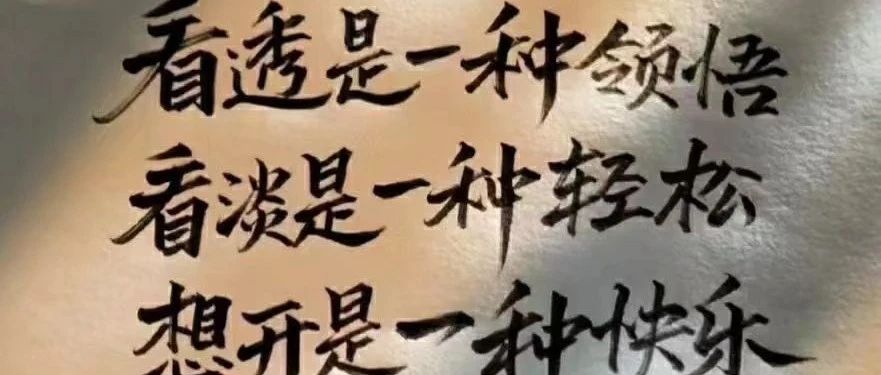 看透是一种领悟
看淡是一种轻松
想开是一种快乐